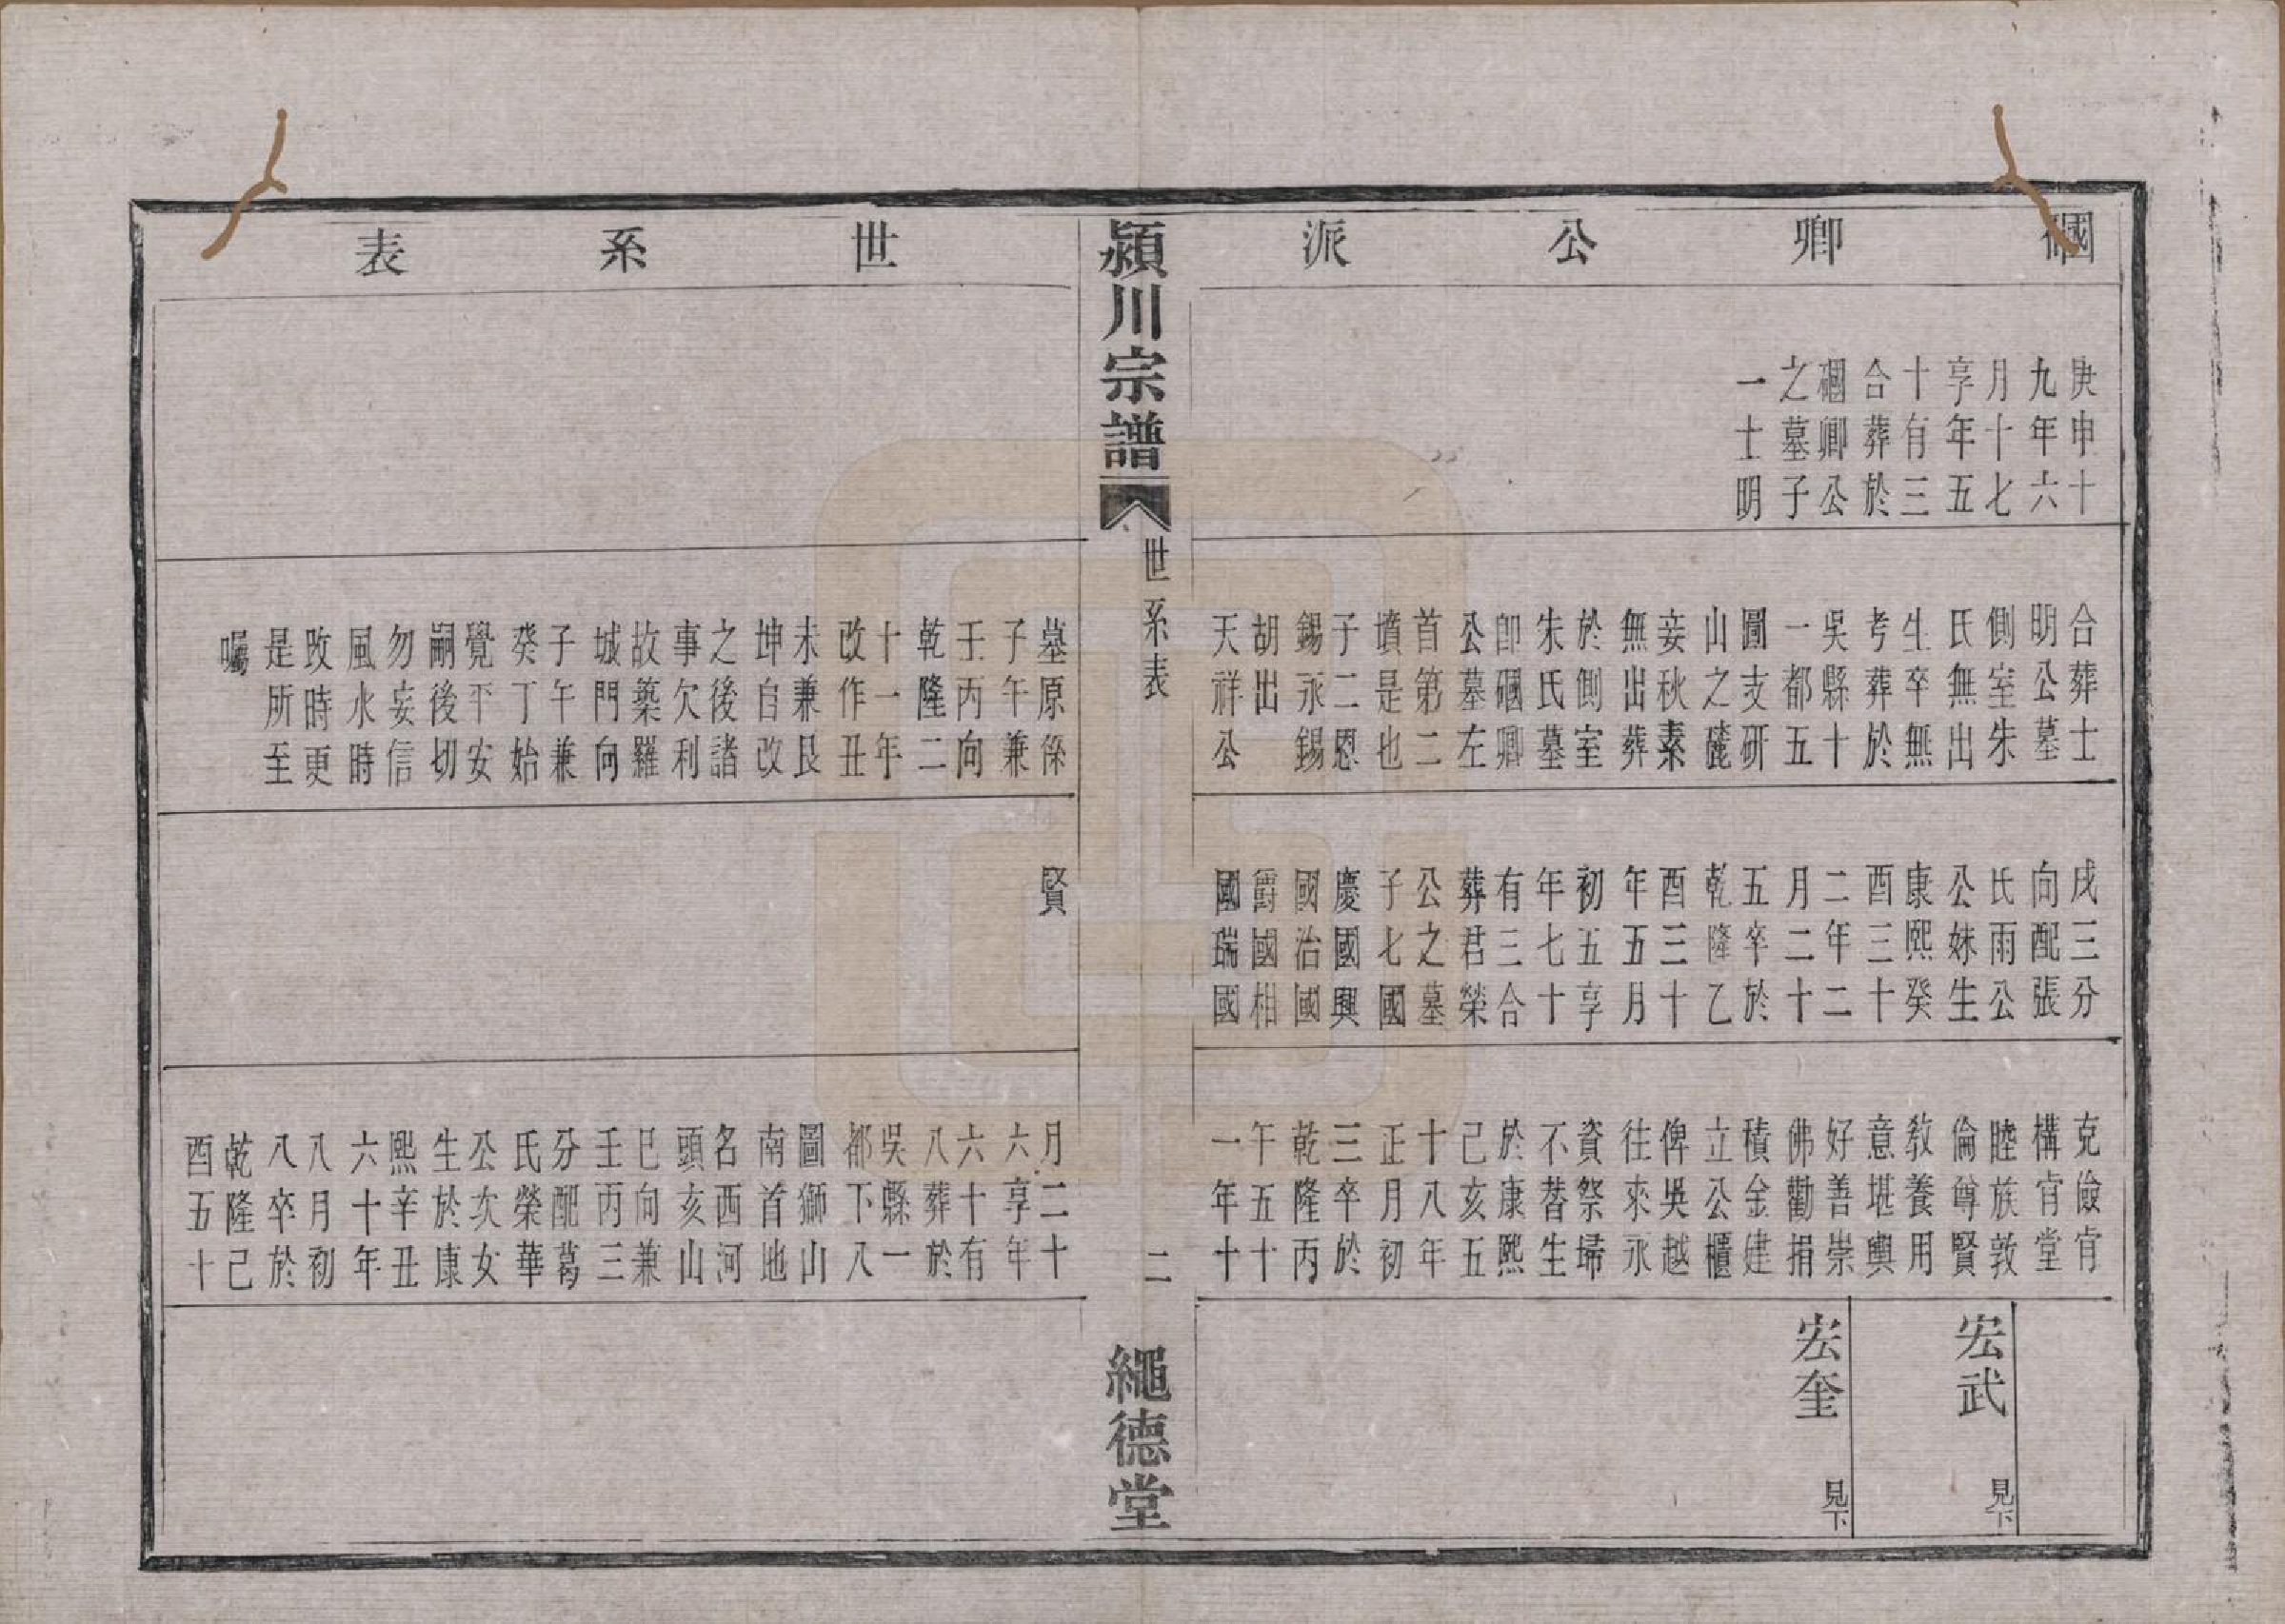 碅卿公派
庚申十
九年六
月十七
享年五
十有三
合葬於
碅卿公
之墓子
一士明
合葬士
明公墓
側室朱
氏無出
生卒無
考葬於
吳縣十
一都五
圖支硏
山之麓
妾秋素
無出葬
於側室
朱氏墓
卽碅卿
公墓左
首第二
墳是也
子二恩
錫永錫
胡出
天祥公
戌三分
向配張
氏雨公
公妹生
康熙癸
酉三十
二年二
月二十
五卒於
乾隆乙
酉三十
年五月
初五享
年七十
有三合
葬君榮
公之墓
子七國
慶國興
國治國
爵國相
國瑞國
克儉肯
構肯堂
睦族敦
倫尊賢
敎養用
意堪輿
好善崇
佛勸捐
積金建
立公櫃
俾吳越
往來永
資祭埽
不替生
於康熙
己亥五
十八年
正月初
三卒於
乾隆丙
午五十
一年十
宏武 見下
宏奎 見下
潁川宗譜 世系表 二 繩德堂
世系表
墓原係
子午兼
壬丙向
乾隆二
十一年
改作丑
未兼艮
坤自改
之後諸
事欠利
故築羅
城門向
子午兼
癸丁始
覺平安
嗣後切
勿妄信
風水時
改時更
是所至
囑
賢
月二十
六享年
六十有
八葬於
吳縣一
都下八
圖獅山
南首地
名西河
頭亥山
巳向兼
壬丙三
分配葛
氏榮華
公次女
生於康
熙辛丑
六十年
八月初
八卒於
乾隆己
酉五十